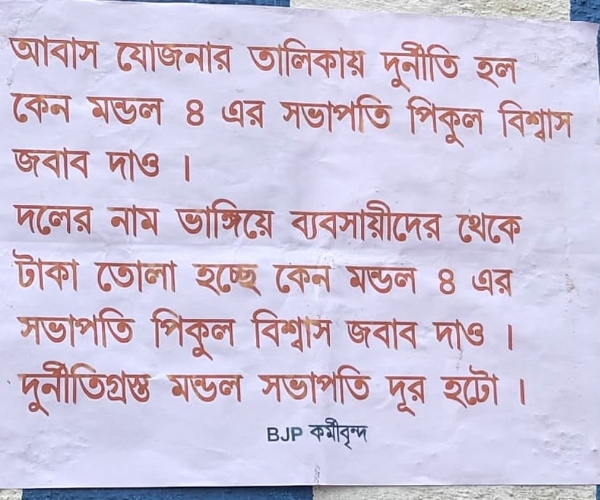 আবাস যোজনার তালিকায় দুর্নীতি হল
কেন মন্ডল ৪ এর সভাপতি পিকুল বিশ্বাস
জবাব দাও ।
দলের নাম ভাঙ্গিয়ে ব্যবসায়ীদের থেকে
টাকা তোলা হচ্ছে কেন মন্ডল ৪ এর
সভাপতি পিকুল বিশ্বাস জবাব দাও ।
দুর্নীতিগ্রস্ত মন্ডল সভাপতি দূর হটো ।
BJP কর্মীবৃন্দ